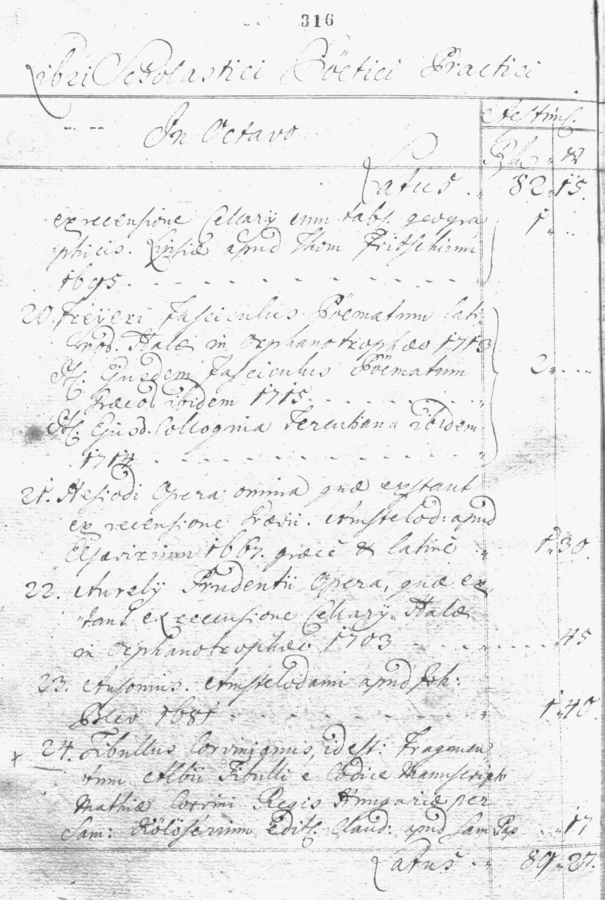 316
Libri Scholastici Pöetici Practici
In Octavo
Aestim.
Rfl. xr
Latus. 82. 15.
ex recensione Cellarij cum tabl. geogra
phicis. Lipsiæ apud Thom Fritschium 1 . .
1695.
20. Freyeri Fasciculus Pöematum lat
Halæ in Orphanotrophæo 1713
It. Ejusdem Fasciculus Pöematum 2 . .
Græcor ibidem 1715.
It. Ejusd. Colloquia Terentiana ibidem
1714
21. Hesiodi Opera omnia quæ extant
ex recensione Græv. Amstelod: apud
Elsevirium 1667. græcè & latinè 1. 30.
22. Aurelij Prudentii Opera, quæ ex
tant ex recensione Cellarij. Halæ
in Orphanotrophæo 1703 45
23. Ausonius. Amstelodami apud Joh:
Blev 1681 1. 40.
+ 24. Tibullus Corvinianus, id est: Fragmen
tum Albii Tibulli e Codice Manuscripto
Mathiæ Corvini Regis Hungariæ per
Sam: Kölöserium Edit. Claud: apud Sam Pap 17
Latus. 89. 27.